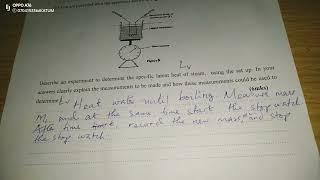 OPPO A76
Figure 8
Lv
Describe an experiment to determine the specific latent heat of steam, using the set up. In your
answer clearly explain the measurements to be made and how these measurements could be used to
determine Lv (6mks)
Heat water until boiling. Measure mass
M1 and at the same time start the stop watch
After time record the new mass, and stop
the stop watch.